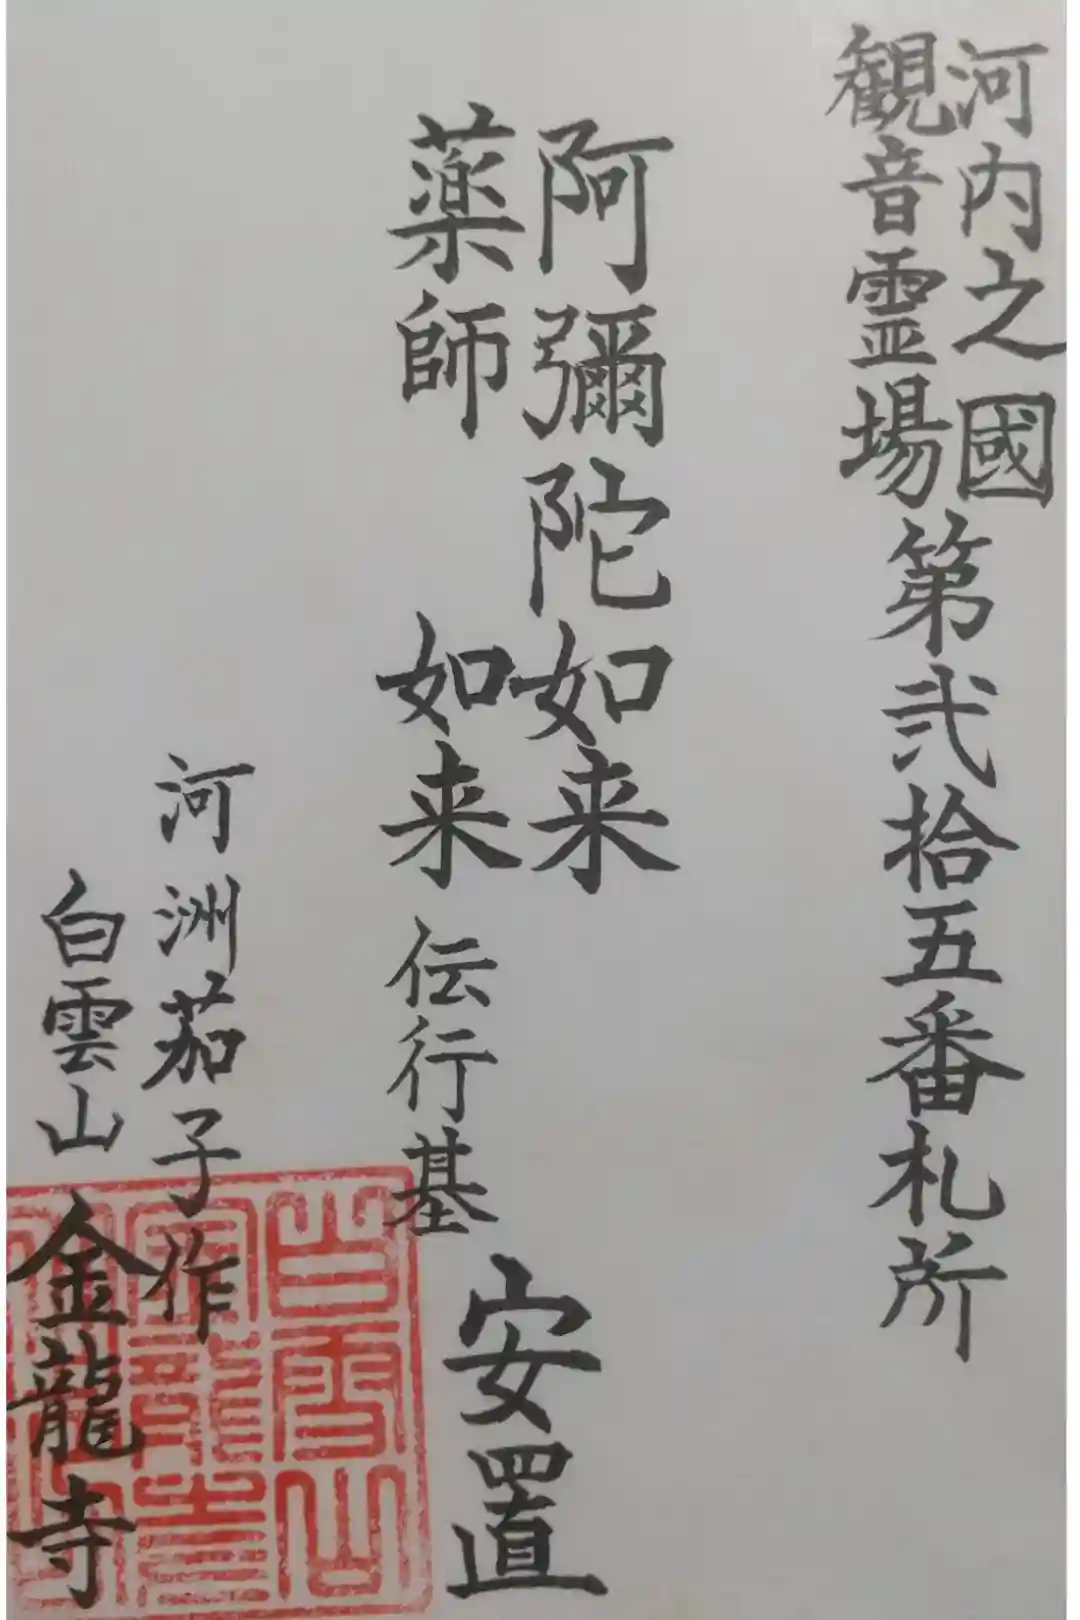 河内之國
觀音霊場
第弐拾五番札所
阿彌陀如来
薬師如来
伝行基
安置
河洲茄子作
白雲山
金龍寺
白雲山
金龍寺